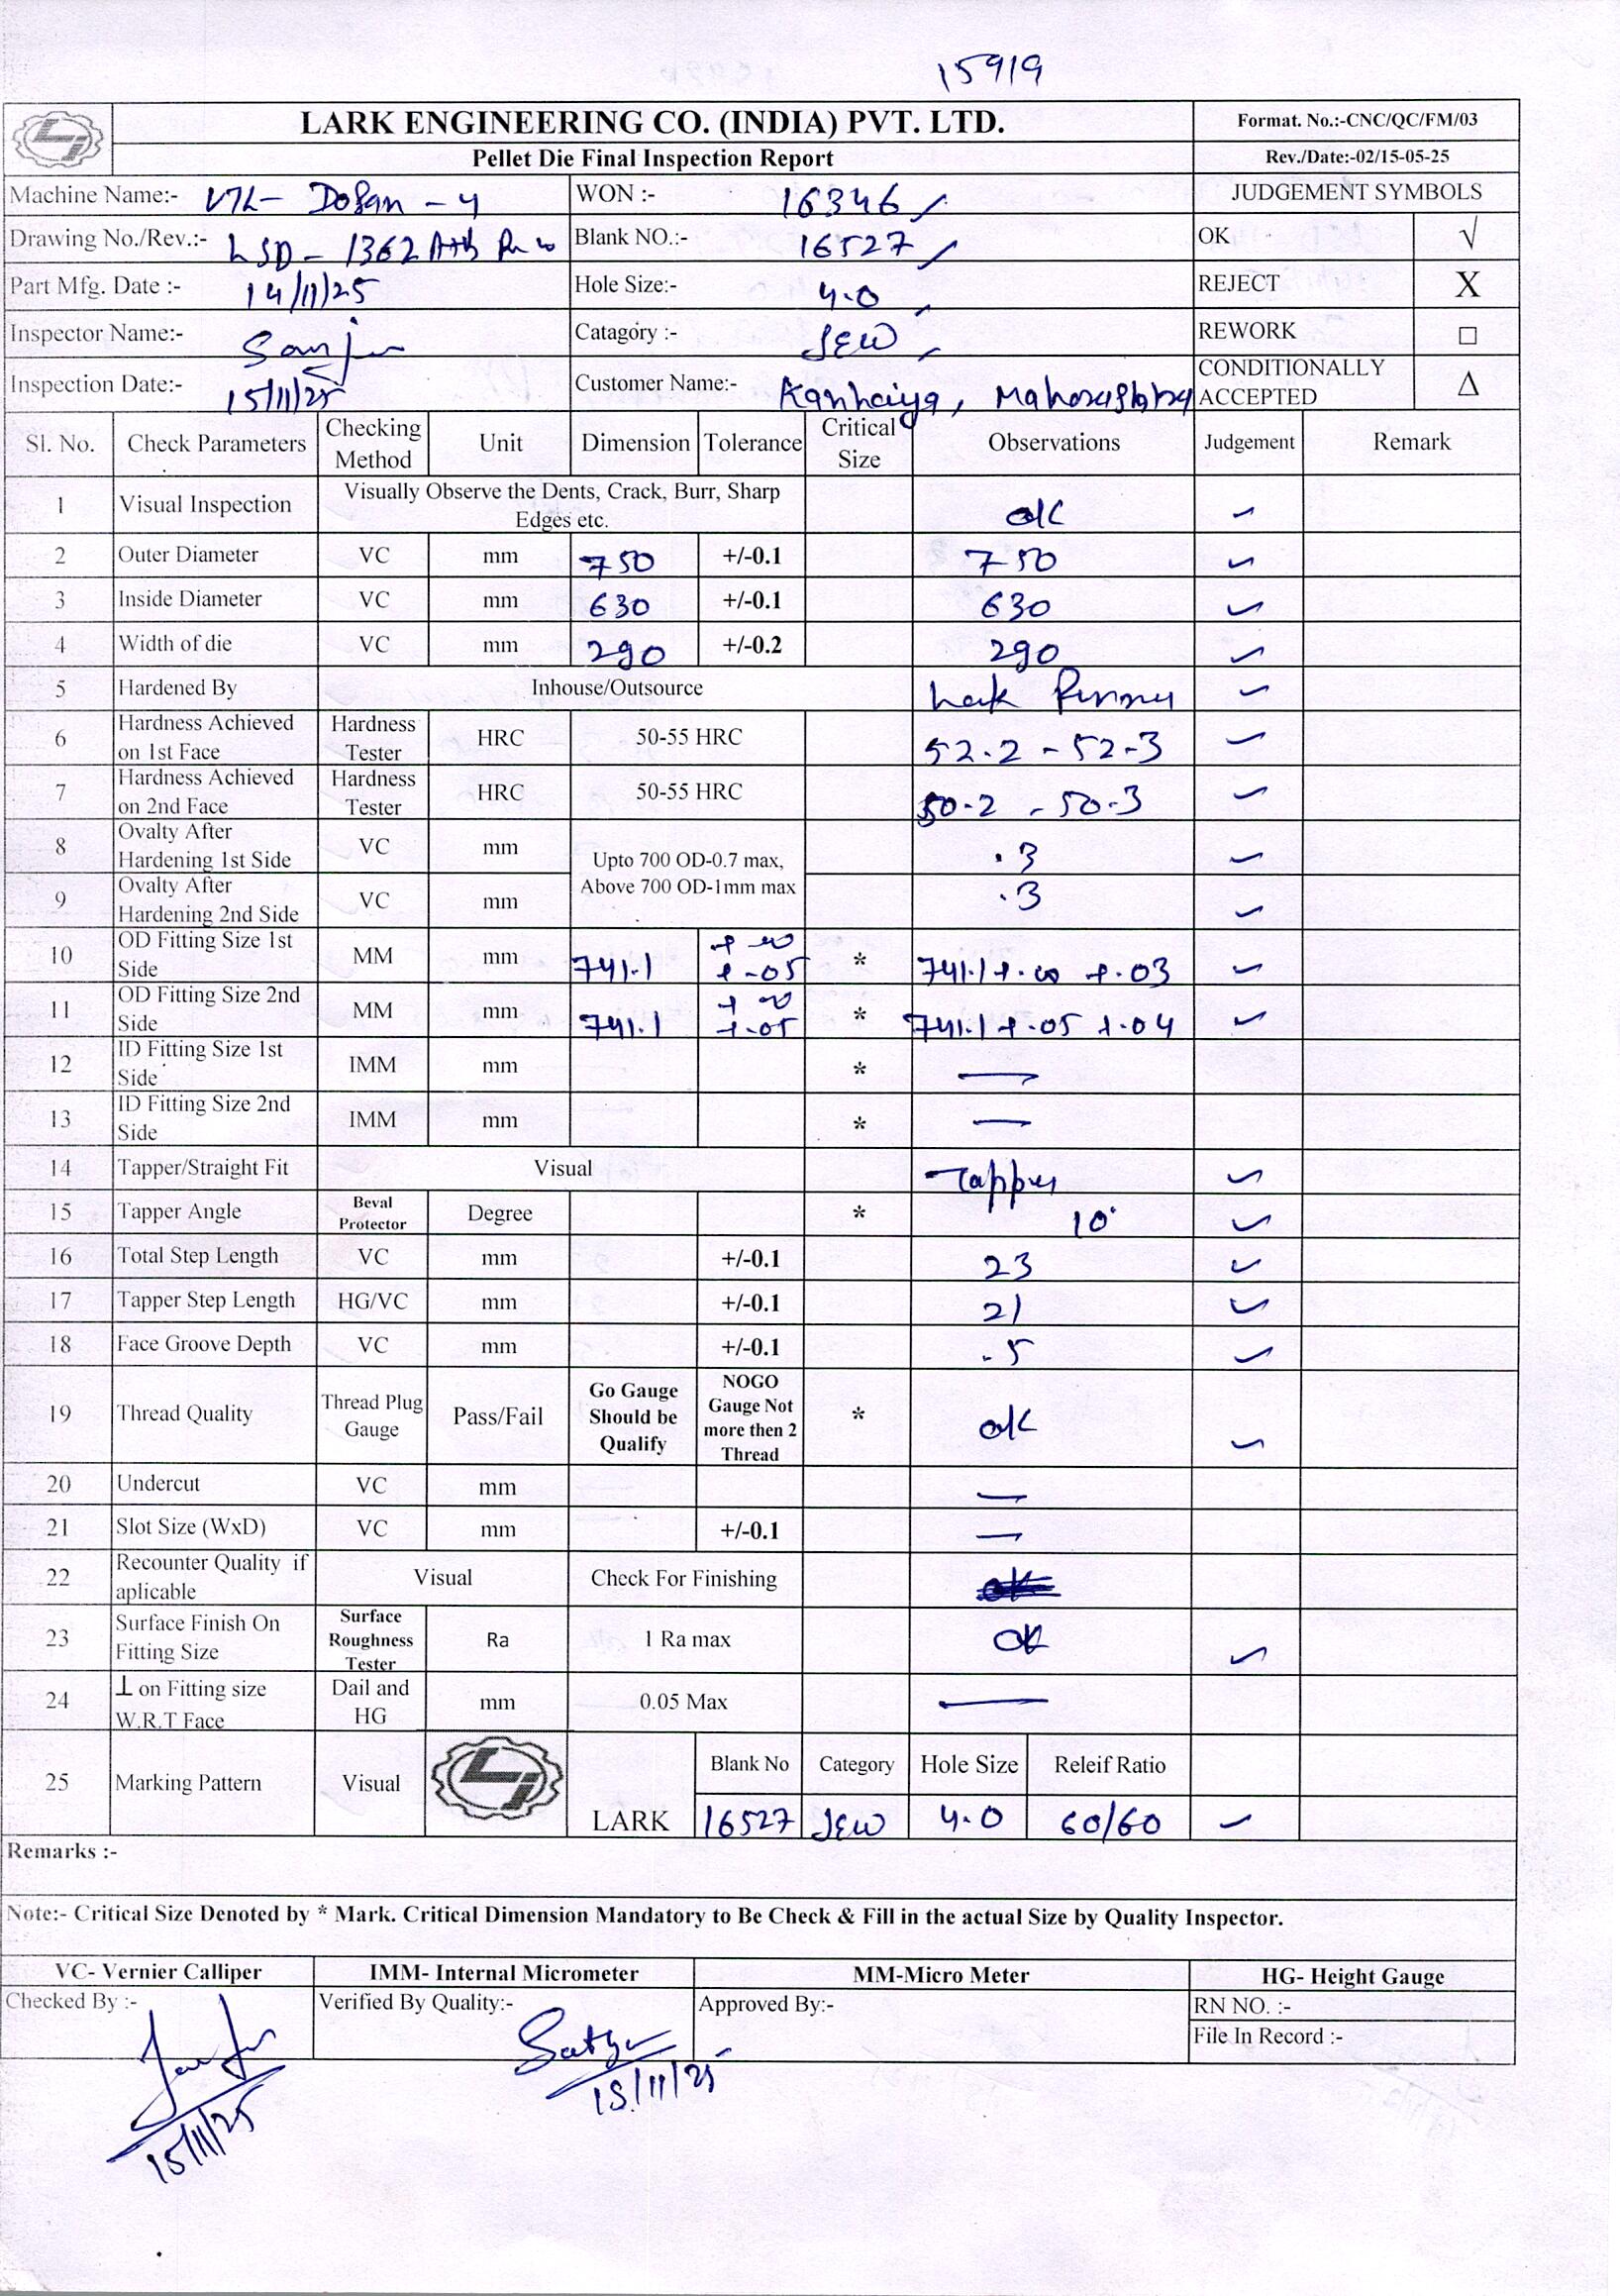 15919
LARK ENGINEERING CO. (INDIA) PVT. LTD.
Format. No.:-CNC/QC/FM/03
Pellet Die Final Inspection Report
Rev./Date:-02/15-05-25
Machine Name:- VTL- Dosan - 4 WON :- 16346 JUDGEMENT SYMBOLS
Drawing No./Rev.:- LSD - 1362 Blank NO.:- 16527 OK √
Part Mfg. Date :- 14/11/25 Hole Size:- 4.0 REJECT X
Inspector Name:- Sanju Catagory :- JEW REWORK □
Inspection Date:- 15/11/25 Customer Name:- Kanhaiya, Maharashtra CONDITIONALLY ACCEPTED Δ
Sl. No. Check Parameters Checking Method Unit Dimension Tolerance Critical Size Observations Judgement Remark
1 Visual Inspection Visually Observe the Dents, Crack, Burr, Sharp Edges etc. ok ✓
2 Outer Diameter VC mm 750 +/-0.1 750 ✓
3 Inside Diameter VC mm 630 +/-0.1 630 ✓
4 Width of die VC mm 290 +/-0.2 290 ✓
5 Hardened By Inhouse/Outsource Lark ✓
6 Hardness Achieved on 1st Face Hardness Tester HRC 50-55 HRC 52.2 - 52.3 ✓
7 Hardness Achieved on 2nd Face Hardness Tester HRC 50-55 HRC 50.2 - 50.3 ✓
8 Ovalty After Hardening 1st Side VC mm Upto 700 OD-0.7 max, Above 700 OD-1mm max .3 ✓
9 Ovalty After Hardening 2nd Side VC mm .3 ✓
10 OD Fitting Size 1st Side MM mm 741.1 +.00 +.05 * 741.1 +.00 +.03 ✓
11 OD Fitting Size 2nd Side MM mm 741.1 +.00 +.05 * 741.1 +.05 +.04 ✓
12 ID Fitting Size 1st Side IMM mm * —
13 ID Fitting Size 2nd Side IMM mm * —
14 Tapper/Straight Fit Visual Tapper ✓
15 Tapper Angle Beval Protector Degree * 10° ✓
16 Total Step Length VC mm +/-0.1 23 ✓
17 Tapper Step Length HG/VC mm +/-0.1 21 ✓
18 Face Groove Depth VC mm +/-0.1 .5 ✓
19 Thread Quality Thread Plug Gauge Pass/Fail Go Gauge Should be Qualify NOGO Gauge Not more then 2 Thread * ok ✓
20 Undercut VC mm —
21 Slot Size (WxD) VC mm +/-0.1 —
22 Recounter Quality if aplicable Visual Check For Finishing ok
23 Surface Finish On Fitting Size Surface Roughness Tester Ra 1 Ra max ok ✓
24 ⊥ on Fitting size W.R.T Face Dail and HG mm 0.05 Max —
25 Marking Pattern Visual LARK Blank No Category Hole Size Releif Ratio
16527 JEW 4.0 60/60 ✓
Remarks :-
Note:- Critical Size Denoted by * Mark. Critical Dimension Mandatory to Be Check & Fill in the actual Size by Quality Inspector.
VC- Vernier Calliper IMM- Internal Micrometer MM-Micro Meter HG- Height Gauge
Checked By :- Verified By Quality:- Approved By:- RN NO. :-
File In Record :-
Sanju Satya
15/11/25 15/11/25